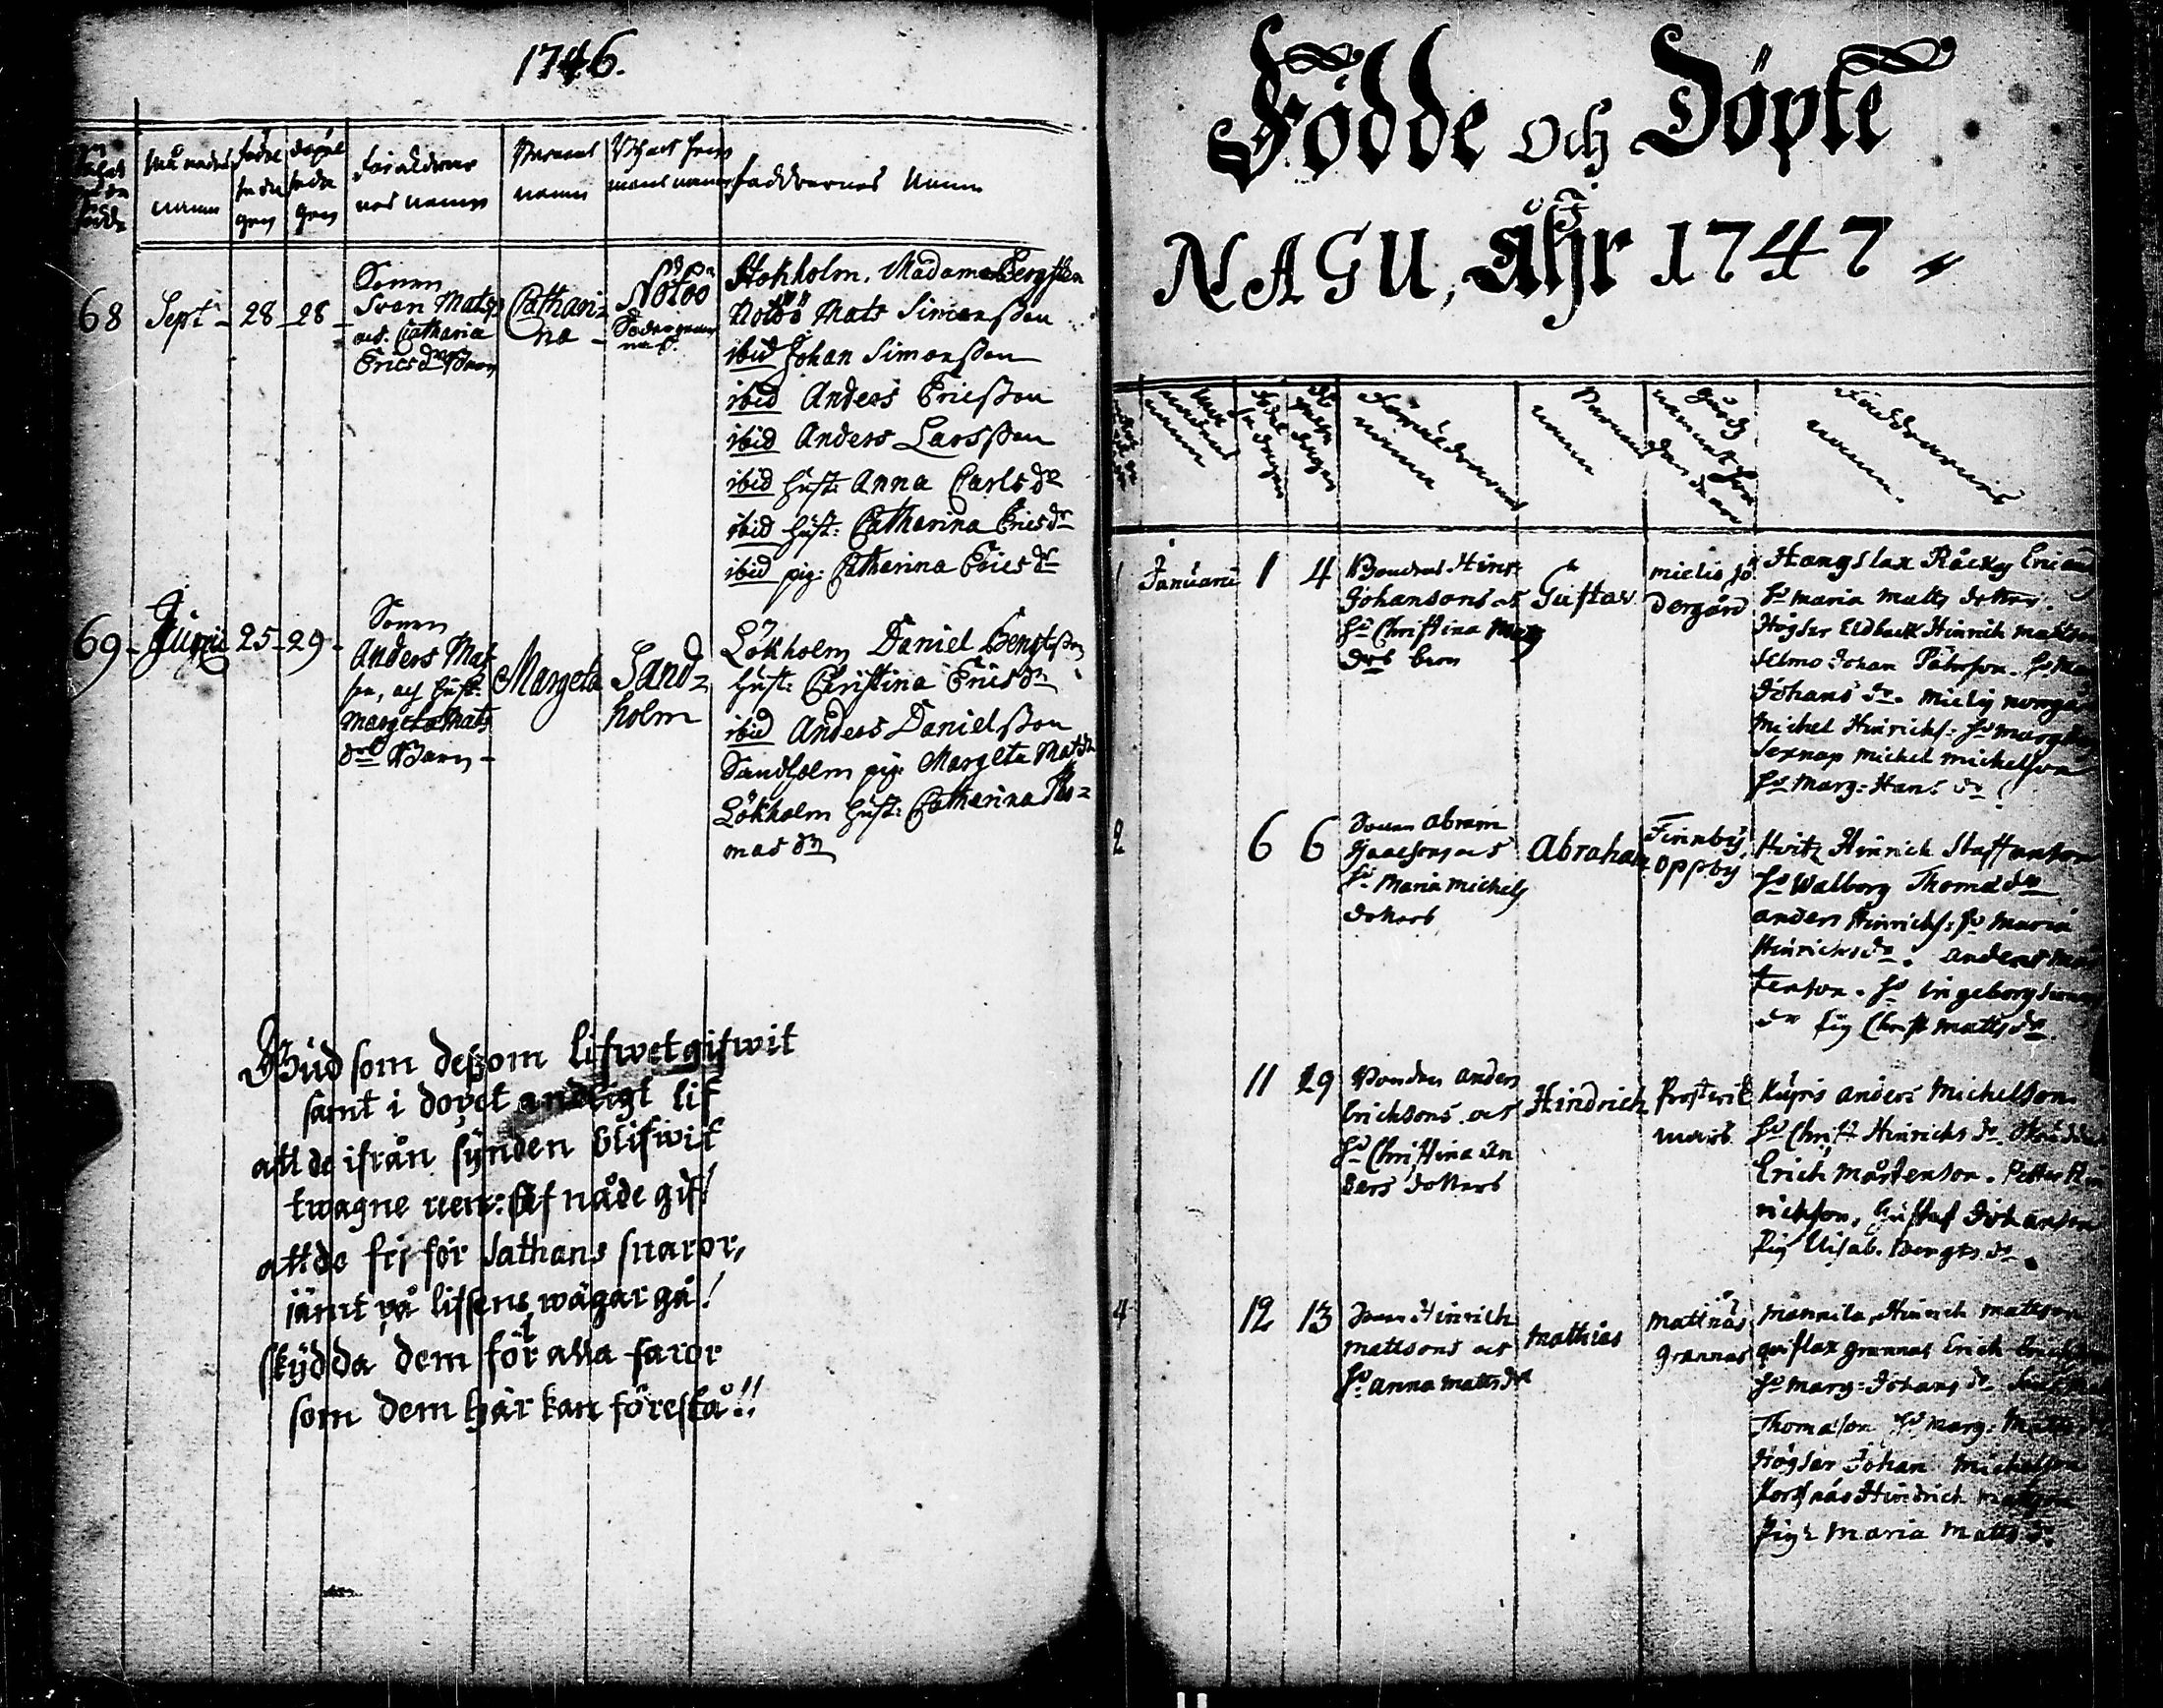 1746.
Månadens
namn
födel
seda
gen
döpel
seda
gen
Föräldrar
nas namn
Barnens
namn
Faddrarnas Namn
68 Sept - 28 - 28 -
Sven Mats
och Catharia
Ericsdrs Barn
Cathari=
na -
Nötöö
Stokholm. Madame Bergsten
Nötöö Mats Simonsson
ibid Johan Simonsson
ibid Anders Ericsson
ibid Anders Larsson
ibid Hust: Anna Carlsdr
ibid Hust: Catharina Ericsdr
ibid pig: Catharina Ericsdr
69 - Junii 25 - 29 -
Anders Mat
son, och Hust:
Margeta Mats
drs Barn -
Margeta
Sand=
holm
Lökholm Daniel Bengtson
Hust: Christina Ericsdr
ibid Anders Danielsson
Sandholm pig. Margeta Matsdr
Lökholm Hust: Catharina Tho=
masdr
Gud som dessom lifwet gifwit
samt i dopet andeligt lif
att de ifrån synden blifwit
twagne reen: sef nåde gif!
att de frj för Sathans snaror,
jämt på lifsens wägar gå!
skydda dem för alla faror
som dem här kan förestå!!
Födde och Döpte
i
NAGU, Åhr 1747
Månadens
namn
Födel
sedagen
Föräldrarnas
namn
Barnens
namn
Faddrarnas
namn.
1 Januarii 1 4
Bondens Hinr:
Johansons och
Hu Christina Mats
drs barn
Gustav
Mielis Sö
dergård
Hangslax Räcky Eric
Hu Maria Matts dotter.
Högsar Eldback Hinrich Mattson
Selmo Johan Påhrson. Hu
Johans dr. Mielis norgå
Michel Hinrichs: Hu Marg
Sexnap Michel Michelson
Hu Marg: Hans dr
2 6 6
Abram
Isaacsons och
Hu Maria Michels
dotters
Abraham
Finnby
oppby
Hvitz Hinrich Staffanson
Hu Walborg Thomas dr
Anders Hinrichs: Hu Maria
Hinrichs dr. Anders Mår
tenson. Hu Ingeborg Simons
dr Pig Christ Matts dr
11 29
Bonden Anders
Erichsons och
Hu Christina An
ders dotters
Hindrich
Prostvik
Kupis Anders Michelson
Hu Christ Hinrichs dr
Erich Mårtenson. Petter Hin
richson, Gustaf Johanson
Pig Elisab. Bengts dr.
4 12 13
Hinrich
Mattsons och
Hu Anna Matts dr
Mathias
Mattnäs
Grannas
Mannila, Hinrich Mattson
Gviflax Grannas Erich Erichson
Hu Marg: Johans dr
Thomason Hu Marg: Matts
Högsar Johan Michelson
Korsnäs Hindrich Mattson
Pig: Maria Matts dr